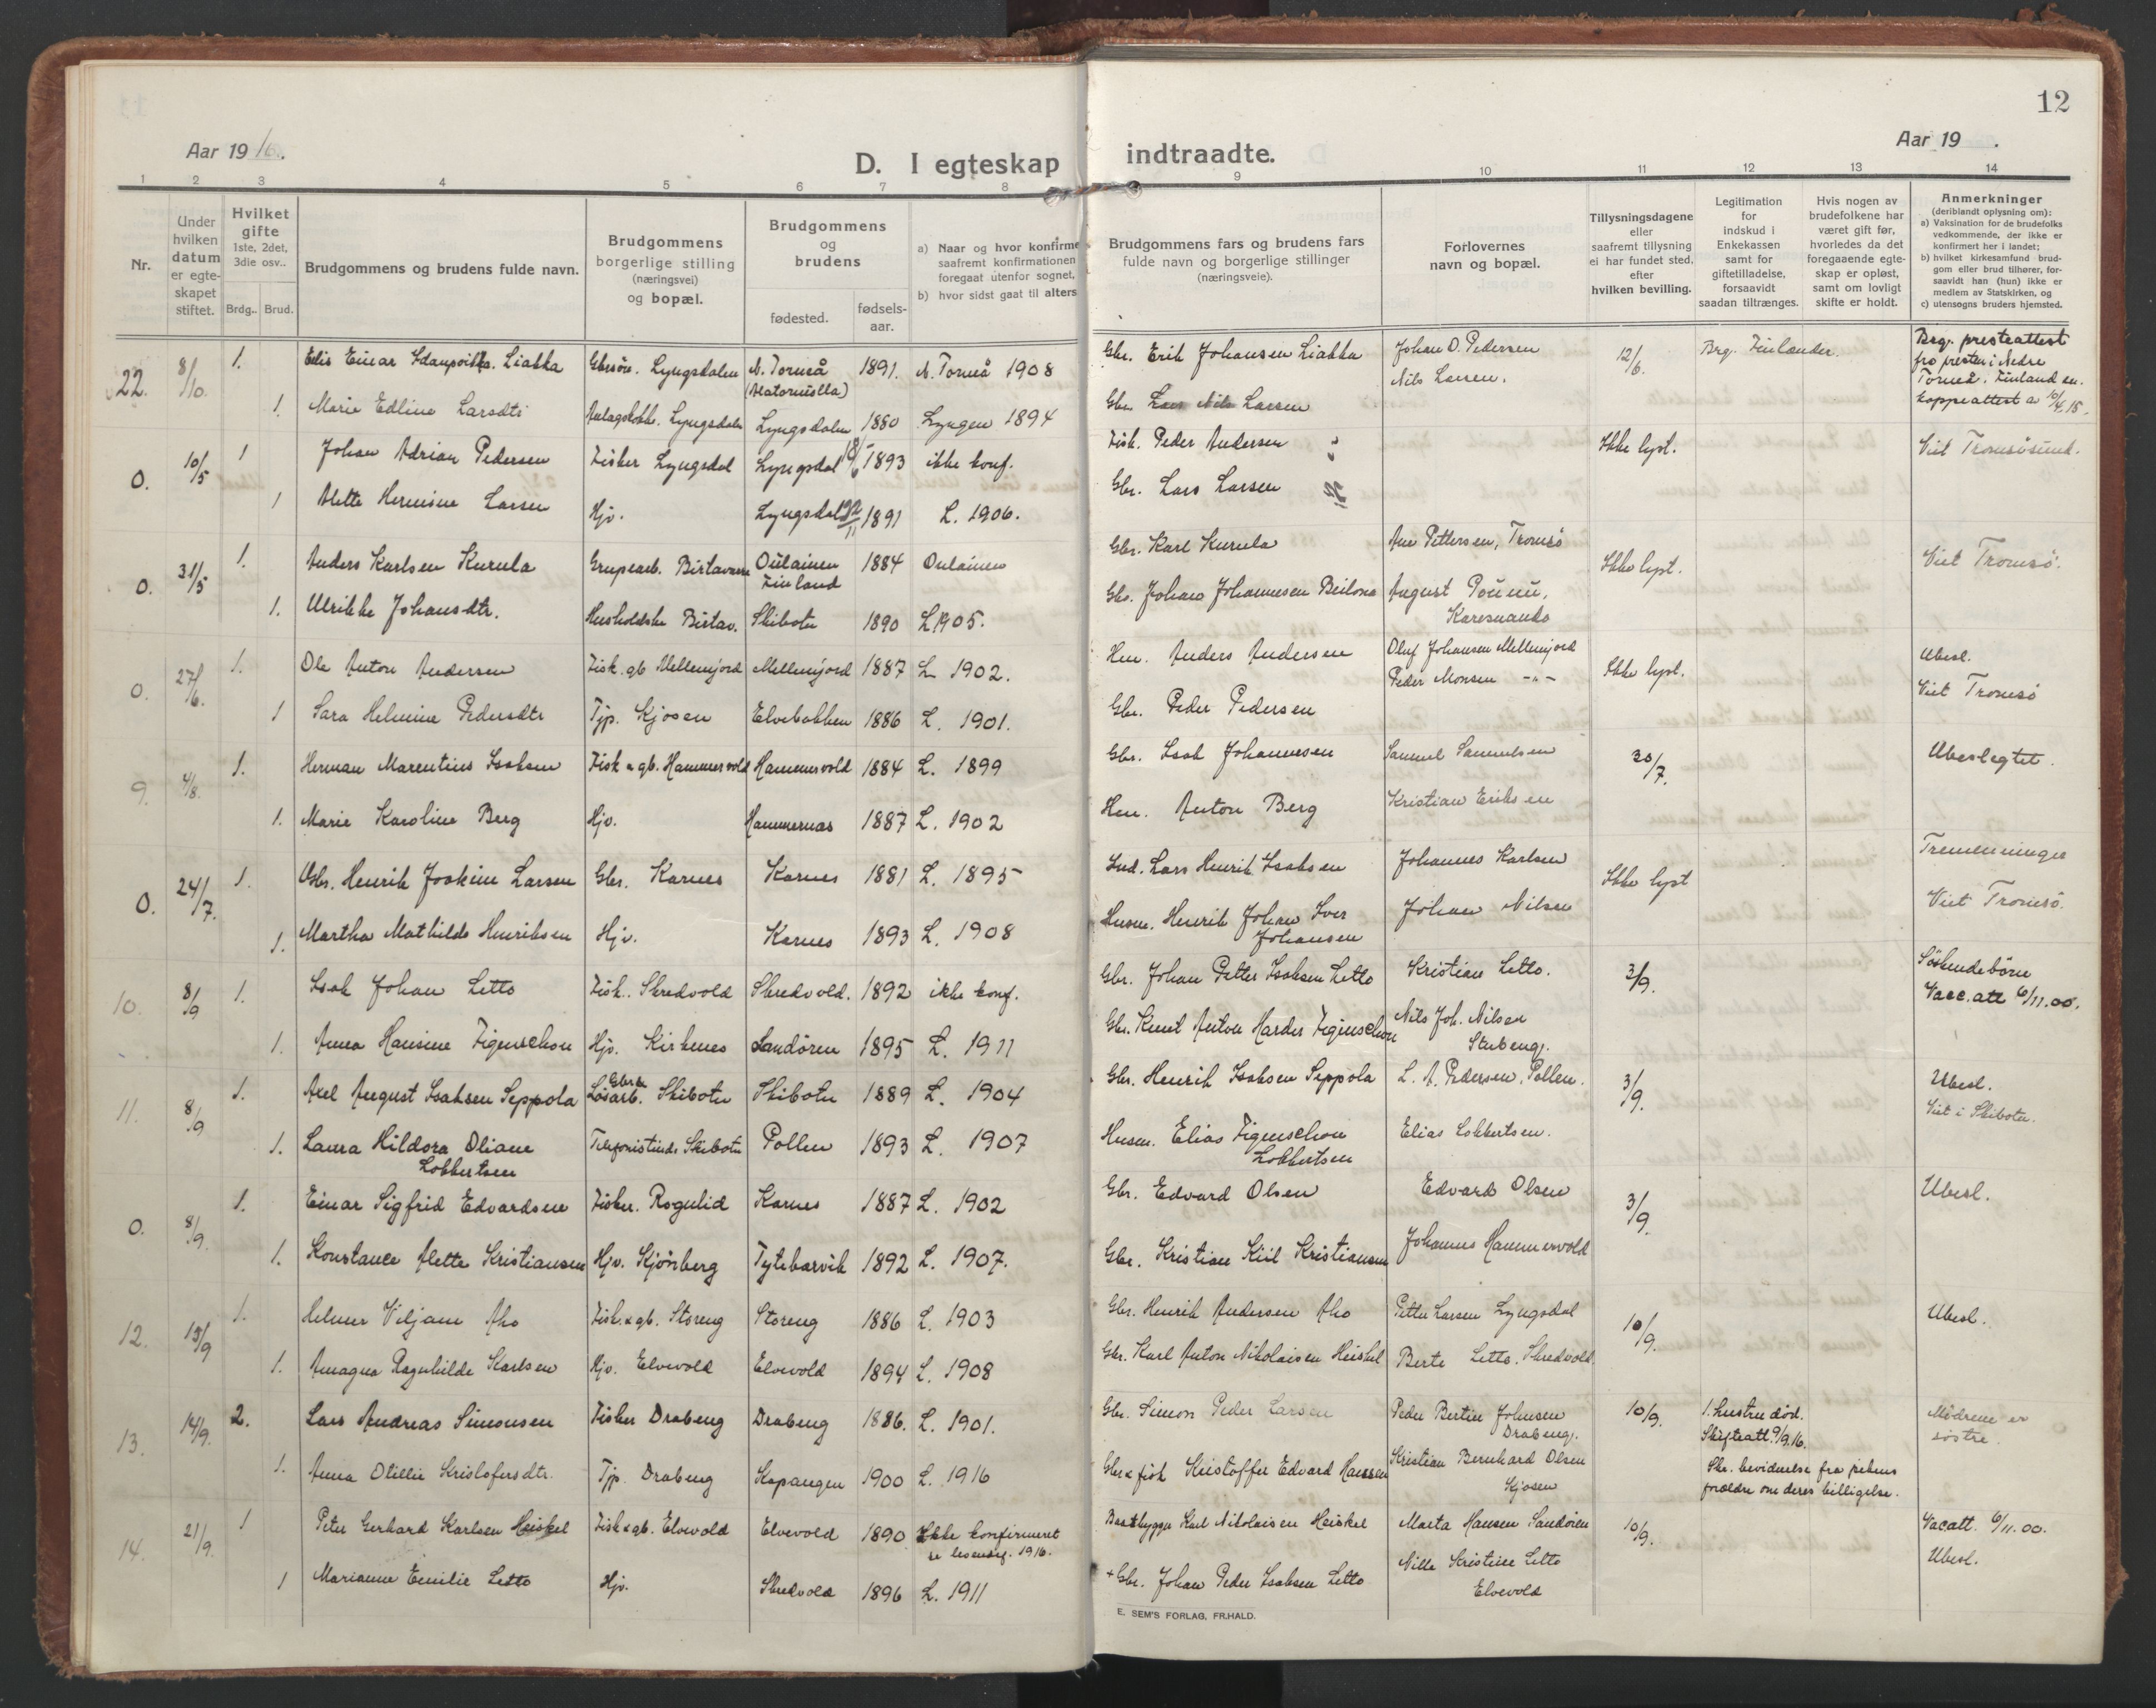 12
Aar 1916.
Aar 19 .
D. I egteskap indtraadte.
1 2 3 4 5 6 7 8 9 10 11 12 13 14
Nr.
Under hvilken datum er egte-skapet stiftet.
Hvilket gifte
1ste, 2det, 3die osv..
Brdg.. Brud.
Brudgommens og brudens fulde navn.
Brudgommens borgerlige stilling (næringsvei) og bopæl.
Brudgommens og brudens
fødested.
fødsels-aar.
a) Naar og hvor konfirme
saafremt konfirmationen
foregaat utenfor sognet,
b) hvor sidst gaat til alters
Brudgommens fars og brudens fars
fulde navn og borgerlige stillinger
(næringsveie).
Forlovernes
navn og bopæl.
Tillysningsdagene
eller
saafremt tillysning
ei har fundet sted,
efter
hvilken bevilling.
Legitimation
for
indskud i
Enkekassen
samt for
giftetilladelse,
forsaavidt
saadan tiltrænges.
Hvis nogen av
brudefolkene har
været gift før,
hvorledes da det
foregaaende egte-
skap er opløst,
samt om lovligt
skifte er holdt.
Anmerkninger
(deriblandt oplysning om):
a) Vaksination for de brudefolks
vedkommende, der ikke er
konfirmert her i landet;
b) hvilket kirkesamfund brud-
gom eller brud tilhører, for-
saavidt han (hun) ikke er
medlem av Statskirken, og
c) utensogns bruders hjemsted.
22. 8/10. 1. Edis Einar Liakka Gbrsön. Lyngsdalen N. Torneå 1891. N. Torneå 1908 Gbr. Erik Johansen Liakka Johan O. Pedersen 12/6. Brg. Finlænder. Brg. presteattest
Nils Larsen. fra presten i Nedre
Torneå. Finland
koppeattest
1. Marie Edline Larsdtr Lyngsdalen Lyngsdalen 1880 Lyngen 1894 Gbr. Nils Larsen
O. 10/5 1 Johan Adrian Pedersen Fisker Lyngsdal Lyngsdal 1893 ikke konf. Fisk. Peder Andersen Ikke lyst. Viet Tromsøsund.
1 Alette Hermine Larsen Hjv. Lyngsdal 1891 L. 1906. Gbr. Lars Larsen
O. 31/5 1. Anders Karlsen Kurula Grupearb. Birtavarre Oulainen Finland 1884 Oulainen Gbr. Karl Kurula Pettersen, Tromsö Ikke lyst. Viet Tromsö.
1. Ulrikke Johansdtr. Birtav. Skibotn 1890 L 1905. Gbr. Johan Johannesen Beilona August
Karesuando
O. 27/6. 1. Ole Anton Andersen Fisk. gb Mellemjord Mellemjord 1887 L 1902. Hm. Anders Andersen Oluf Johansen Mellemjord Ikke lyst. Ubesl.
Peder Monsen -"- Viet Tromsö
1 Sara Helmine Pedersdtr Tjp. Kjosen Elvebakken 1886 L. 1901. Gbr. Peder Pedersen
9. 4/8. 1. Herman Marentius Isaksen Fisk & gb. Hammervold Hammervold 1884 L. 1899 Gbr. Isak Johannesen Samuel Samuelsen 30/7. Ubeslegtet.
1. Marie Karoline Berg Hjv. Hammernas 1887 L. 1902 Hm. Anton Berg Kristian Eriksen
O. 24/7. 1. Henrik Joakim Larsen Gbr. Karnes Karnes 1881 L. 1895 Ind. Lars Henrik Isaksen Johannes Karlsen Ikke lyst Tremenninger
1. Martha Mathilde Henriksen Hjv. Karnes 1893 L. 1908 Husm. Henrik Johan Iver Johansen Johan Nilsen Viet Tromsö.
10. 8/9 1. Isak Johan Letto Fisk. Skredvold Skredvold. 1892 ikke konf. Gbr. Johan Petter Isaksen Letto Kristian Letto. 3/9. Söskendebörn
Vacc. att 6/11.00.
1. Anna Hansine Figenschou Hjv. Kirkenes Sandören 1895 L. 1911 Gbr. Knut Anton Harder Figenschou Nils Joh. Nilsen
Stubeng.
11. 8/9 1. Axel August Isaksen Seppola Gbr & Lösarb. Skibotn Skibotn 1889 L. 1904 Gbr. Henrik Isaksen Seppola L. A. Pedersen, Pollen. 3/9. Ubesl.
Viet i Skibotn.
1. Laura Hildora Oliane Lokkertsen Telefonistinde Skibotn Pollen 1893 L. 1907 Husm. Elias Figenschou Lokkertsen Elias Lokkertsen.
O. 8/9. 1. Einar Sigfrid Edvardsen Fisker. Rognlid Karnes 1887 L. 1902 Gbr. Edvard Olsen Edvard Olsen 3/9. Ubesl.
1. Konstance Alette Kristiansen Hjv. Kjönberg Tytebærvik 1892 L. 1907. Gbr. Kristian Kiil Kristiansen Johannes Hammervold
12. 13/9 1. Helmer Viljam Aho Fisk. & gb. Storeng Storeng 1886 L. 1903 Gbr. Henrik Andersen Aho Petter Larsen Lyngsdal 10/9. Ubesl.
1. Amagna Ragnhilde Karlsen Hjv. Elvevold Elvevold 1894 L. 1908 Gbr. Karl Anton Nikolaisen Heiskel Berte Letto. Skredvold.
13. 14/9. 2. Lars Andreas Simonsen Fisker Drabeng Drabeng 1886. L. 1901. Gbr. Simon Peder Larsen Peder Bertin Johnsen Drabeng. 10/9. 1. hustru död. Mödrene er
Skifteatt. 9/9.16. söstre.
1. Anna Otillie Kristofersdtr. Tjp. Drabeng Kopangen 1900 L. 1916 Gbr & fisk Kristoffer Edvard Hansen Kristian Bernhard Olsen Kjosen Skr. bevidnelse fra pikens
forældre om deres billigelse.
14. 21/9. 1 Peter Gerhard Karlsen Heiskel Fisk & gb. Elvevold Elvevold 1890 Ikke konfirmeret Baatbygger Karl Nikolaisen Heiskel Marta Hansen Sandören 10/9. Vacatt. 6/11.00.
1916. Ubesl.
1 Marianne Emilie Letto Hjv. Skredvold 1896 L. 1911 + Gbr. Johan Peder Isaksen Letto Nille Kristine Letto
Elvevold
E. SEM'S FORLAG, FR.HALD.